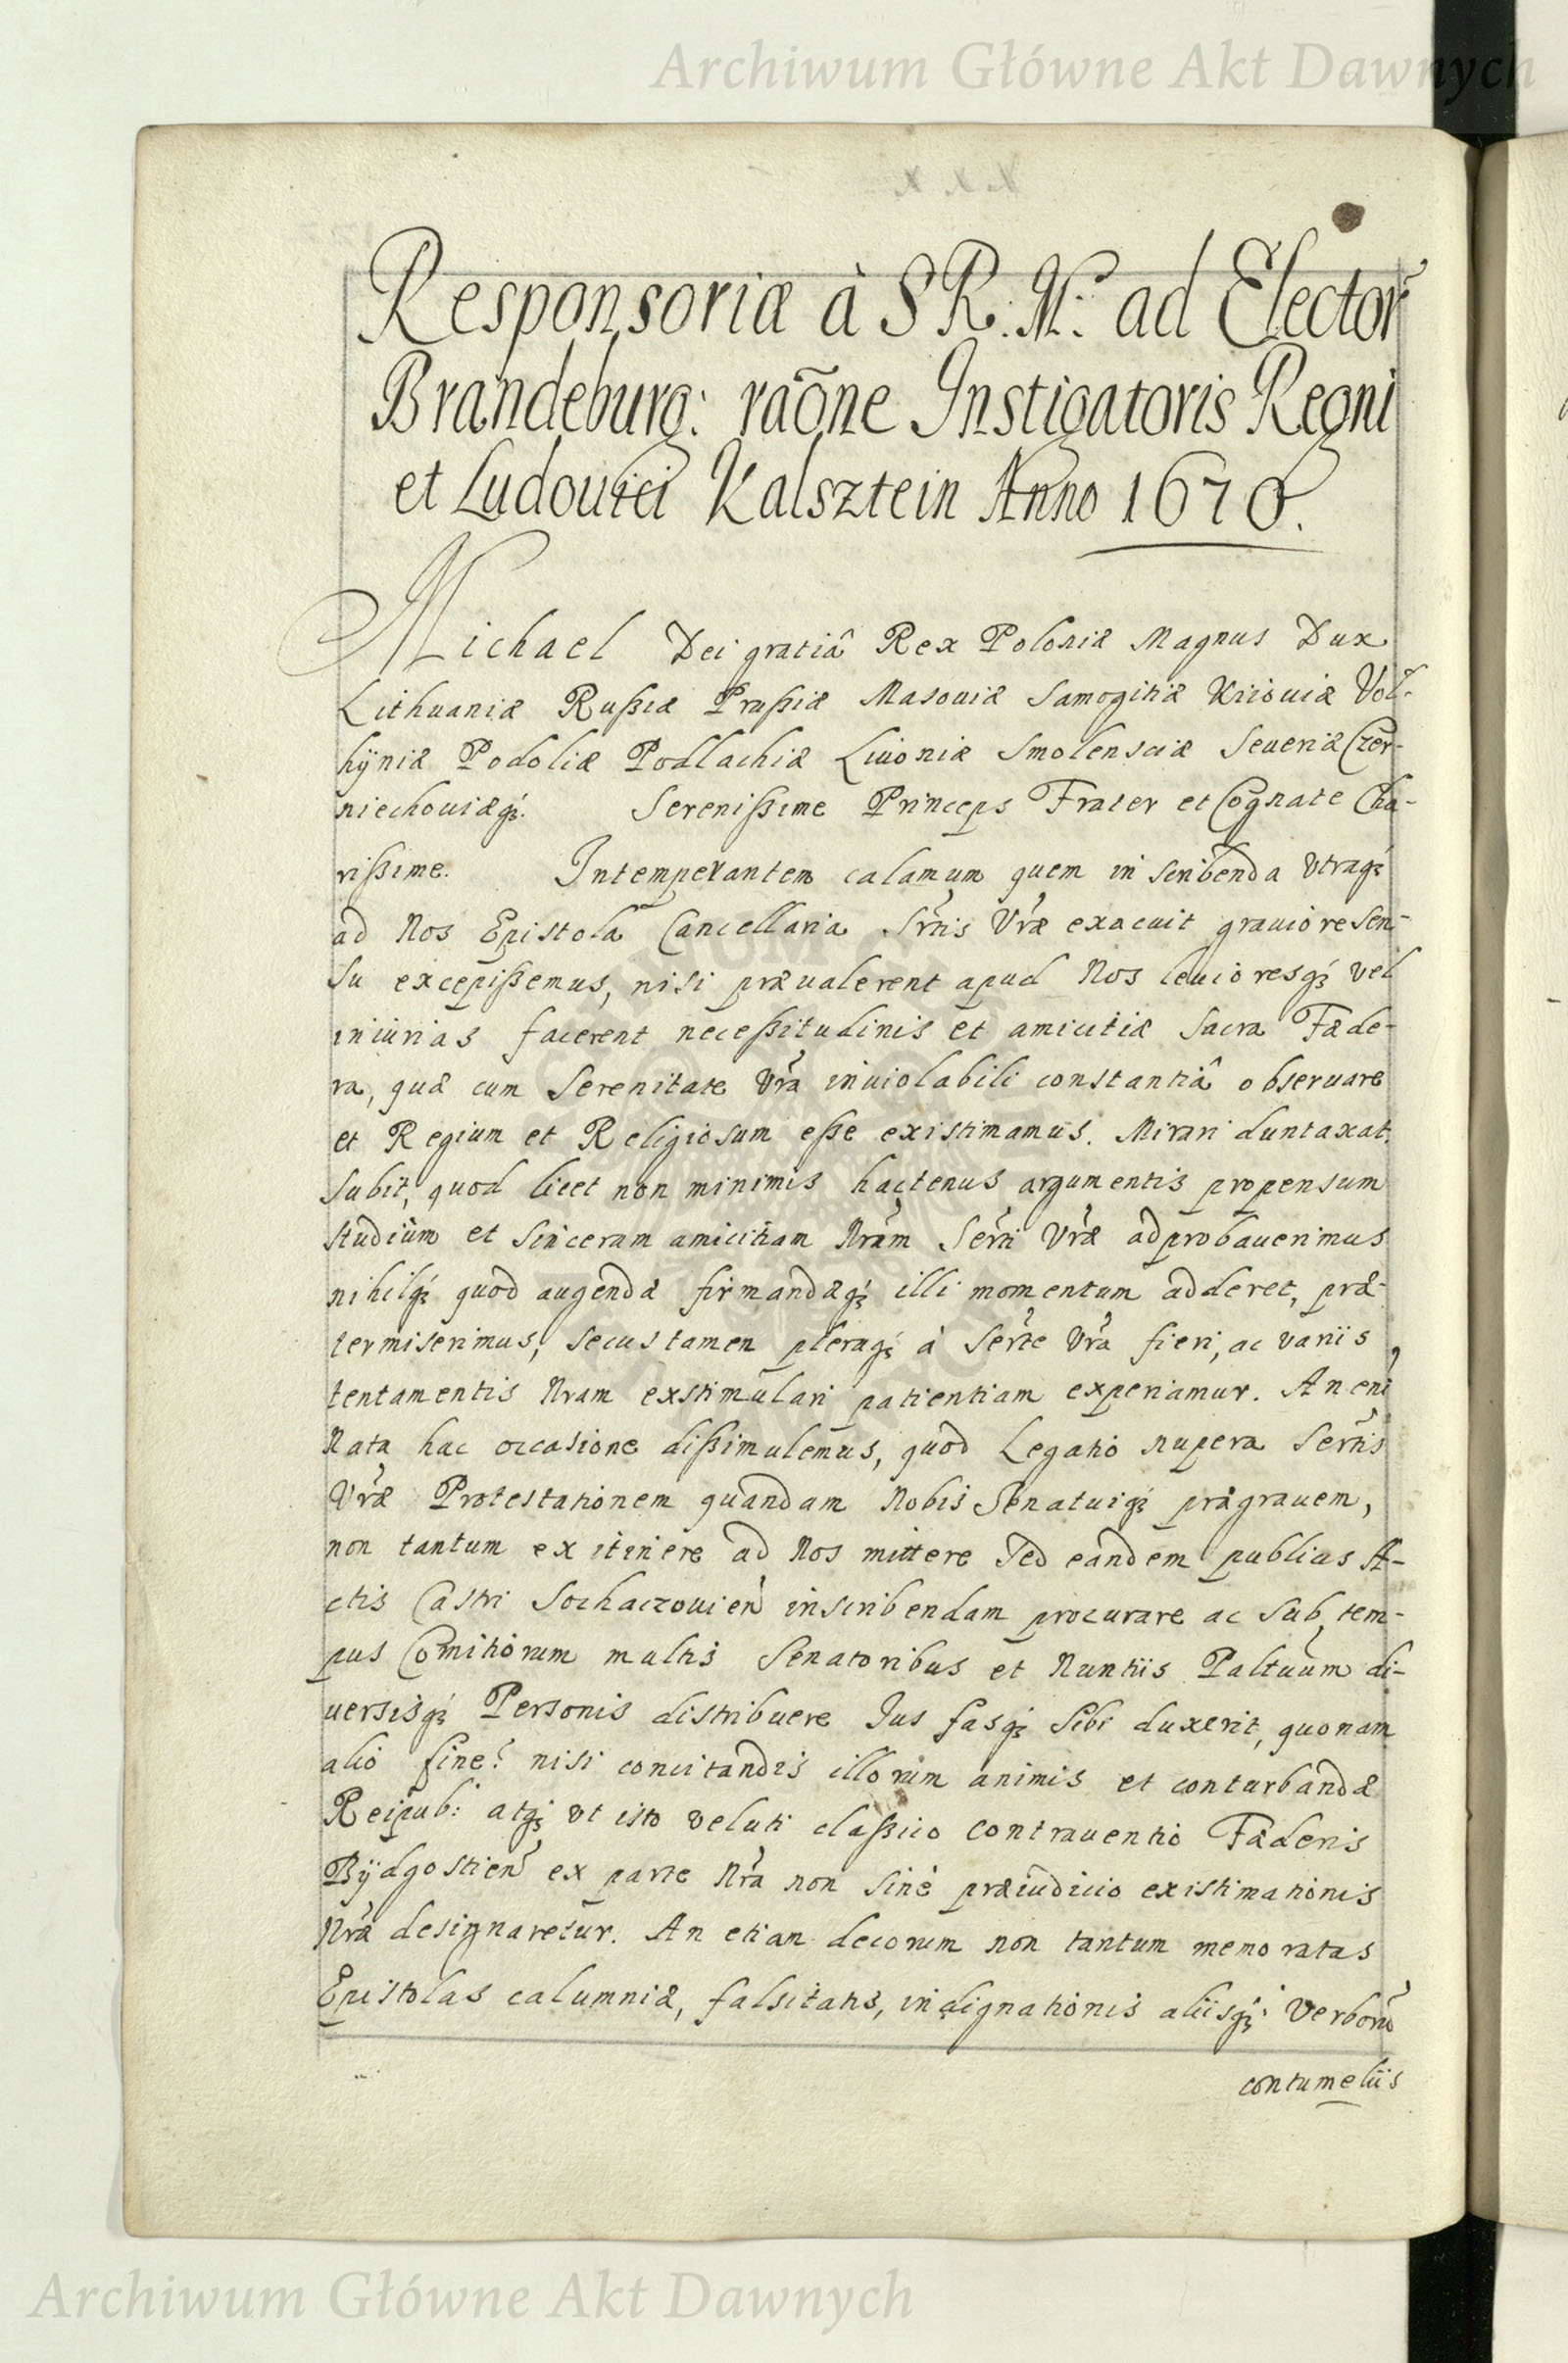 Archiwum Główne Akt Dawnych
Responsoriæ à S R. M: ad Elector̃
Brandeburg: raõne Instigatoris Regni
et Ludouici Kalsztein Anno 1670.
Michael Dei gratiâ Rex Poloniæ Magnus Dux
Lithuaniæ Rußiæ Prußiæ Masouiæ Samogitiæ Kiiouiæ Vol-
hÿniæ Podoliæ Podlachiæ Liuoniæ Smolensciæ Seueriæ Czer-
niechouiæq́₃. Serenißime Princeps Frater et Cognate Cha-
rißime. Intemperantem calamum quem in scribenda vtraq́₃
ad Nos Epistola Cancellaria Srtis̃ Vræ̃ exacuit grauiore sen-
su excepißemus, nisi præualerent apud Nos leuioresq́₃ vel
iniurias facerent neceßitudinis et amicitiæ sacra Fæde-
ra, quæ cum Serenitate Vrã inuiolabili constantiâ obseruare
et Regium et Religiosum eße existimamus. Mirari duntaxat
subit, quod licet non minimis hactenus argumentis propensum
studium et sinceram amicitiam Nrãm Serti̇̃ Vræ̃ adprobauerimus
nihilq́₃ quod augendæ firmandæq́₃ illi momentum adderet, præ-
termiserimus, secus tamen pleraq́₃ à Sertẽ Vrã fieri, ac variis
tentamentis Nram exstimulari patientiam experiamur. An enĩ
Nata hac occasione dißimulemus, quod Legatio nupera Sertis̃
Vræ̃ Protestationem quandam Nobis Senatuiq́₃ prægrauem,
non tantum ex itinere ad Nos mittere sed eandem publicis A-
ctis Castri Sochaczouieñ inscribendam procurare ac sub tem-
pus Comitiorum multis Senatoribus et Nuntiis Paltuũm di-
uersisq́₃ Personis distribuere Jus fasq́₃ sibi duxerit, quonam
alio fine? nisi concitandis illorum animis et conturbandæ
Reipub: atq́₃ vt isto veluti claßico contrauentio Fæderis
Bÿdgostieñ ex parte Nrã non sine præiudicio existimationis
Nræ̃ designaretur. An etian decorum non tantum memoratas
Epistolas calumniæ, falsitatis, indignationis aliisq́₃ verborũ
contumeliis
Archiwum Główne Akt Dawnych